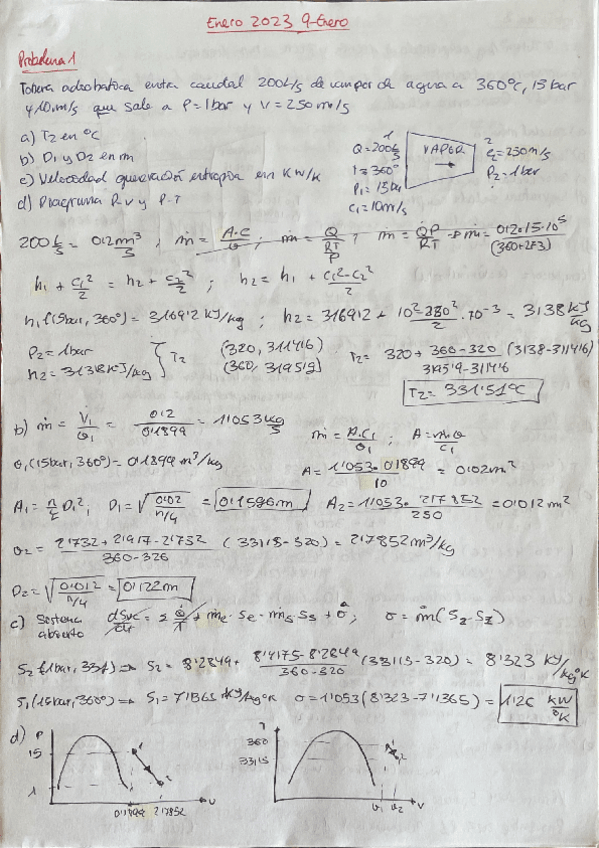 Enero 2023 9-Enero
Problema 1
Tobera adiabática entra caudal 200L/s de vapor de agua a 360°C, 15 bar
y 10 m/s que sale a P=1bar y V=250m/s
a) T2 en °C
b) D1 y D2 en m
c) Velocidad generación entropia en KW/K
d) Diagrama P.v y P.T
1
Q=200 L/s
t=360°
P1=15bar
C1=10m/s
VAPOR
2
C2=250m/s
P2=1bar
200 L/s = 0'2 m³/s ; ṁ = A·C/υ ; ṁ = Q/(RT/P) ; ṁ = QP/RT → ṁ = 0'2·15·10⁵/(360+273)
h1 + C1²/2 = h2 + C2²/2 ; h2 = h1 + (C1²-C2²)/2
h1 (15bar, 360°) = 3169'2 KJ/kg ; h2 = 3169'2 + (10²-250²)/2 · 10⁻³ = 3138 KJ/kg
P2 = 1bar
h2 = 3138 KJ/kg } T2
(320, 3114'6)
(360, 3195'9)
T2 = 320 + (360-320)/(3195'9-3114'6) (3138-3114'6)
T2 = 331'51°C
b) ṁ = V̇1/υ1 = 0'2/0'1899 = 1'053 kg/s
ṁ = A·C1/υ1 ; A = ṁ·υ/C1
υ1 (15bar, 360°) = 0'1899 m³/kg
A = 1'053·0'1899/10 = 0'02m²
A1 = π/4 D1² ; D1 = √(0'02/(π/4)) = 0'1596m
A2 = 1'053·2'7852/250 = 0'012 m²
υ2 = 2'732 + (2'917-2'732)/(360-320) (331'5-320) = 2'7852 m³/kg
D2 = √(0'012/(π/4)) = 0'122m
c) Sistema abierto dSvc/dt = Σ Q̇/T + ṁe·Se - ṁs Ss + σ̇ ; σ = ṁ(S2-S1)
S2 (1bar, 331) → S2 = 8'2849 + (8'4175-8'2849)/(360-320) (331'5-320) = 8'323 KJ/kg°K
S1 (15bar, 360°) → S1 = 7'1365 KJ/kg°K σ = 1'053(8'323-7'1365) = 1'26 KW/°K
d) P
15
1
1
2
0'1899 2'7852 v
T
360
331'5
1
2
υ1 υ2 v